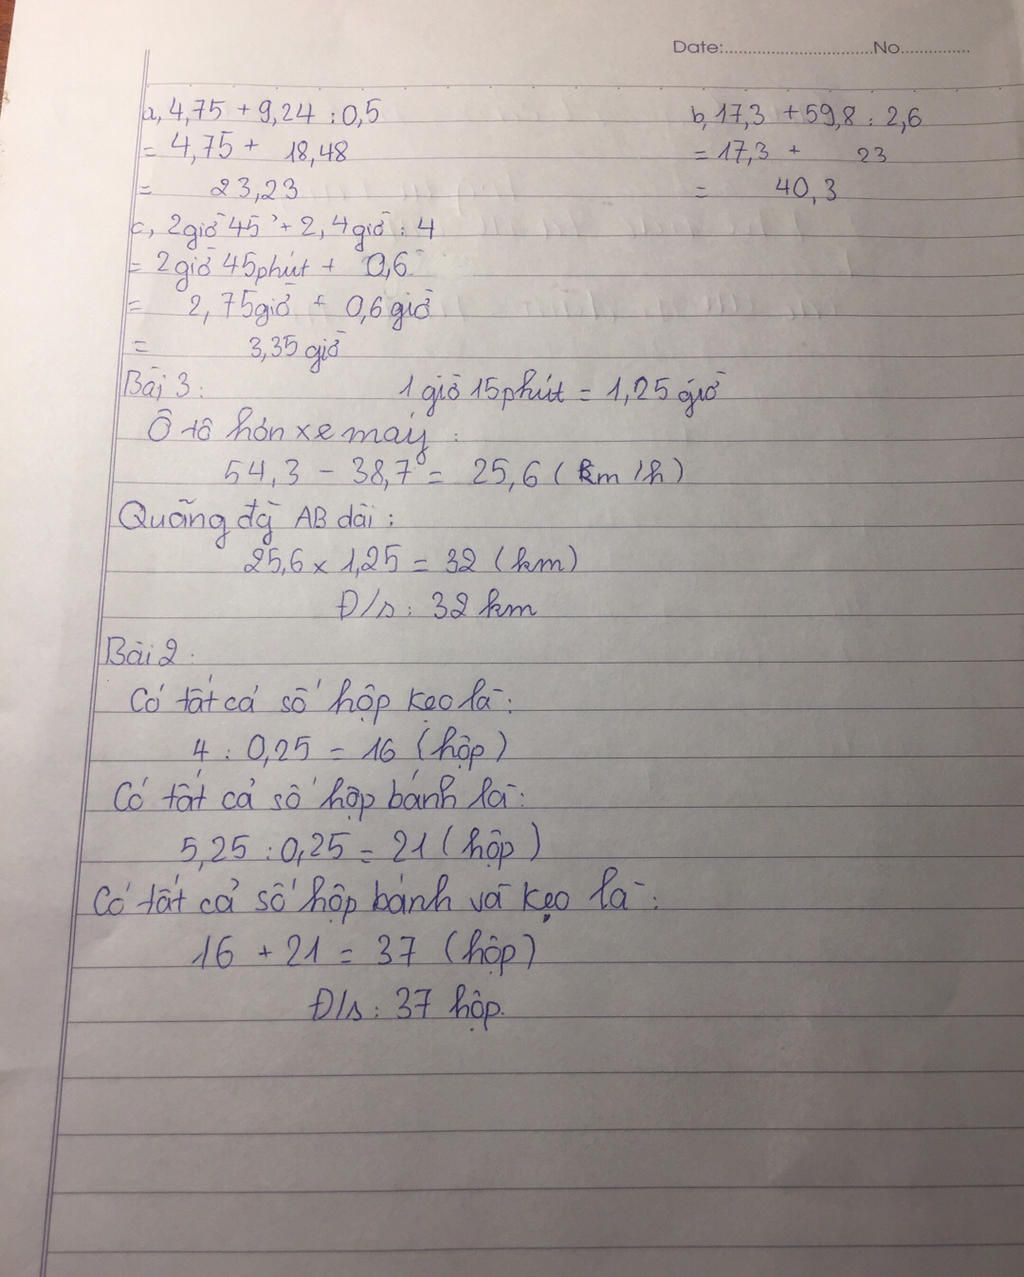 Date:..............................No..............
a, 4,75 + 9,24 : 0,5
= 4,75 + 18,48
= 23,23
b, 17,3 + 59,8 : 2,6
= 17,3 + 23
= 40,3
c, 2giờ 45' + 2,4giờ : 4
= 2giờ 45phút + 0,6
= 2,75giờ + 0,6 giờ
= 3,35 giờ
Bài 3: 1 giờ 15phút = 1,25 giờ
Ô tô hơn xe máy :
54,3 - 38,7 = 25,6 (km/h)
Quãng đg̀ AB dài :
25,6 x 1,25 = 32 (km)
Đ/s : 32 km
Bài 2 :
Có tất cả số hộp kẹo là :
4 : 0,25 = 16 (hộp)
Có tất cả số hộp bánh là :
5,25 : 0,25 = 21 (hộp)
Có tất cả số hộp bánh và kẹo là :
16 + 21 = 37 (hộp)
Đ/s : 37 hộp.